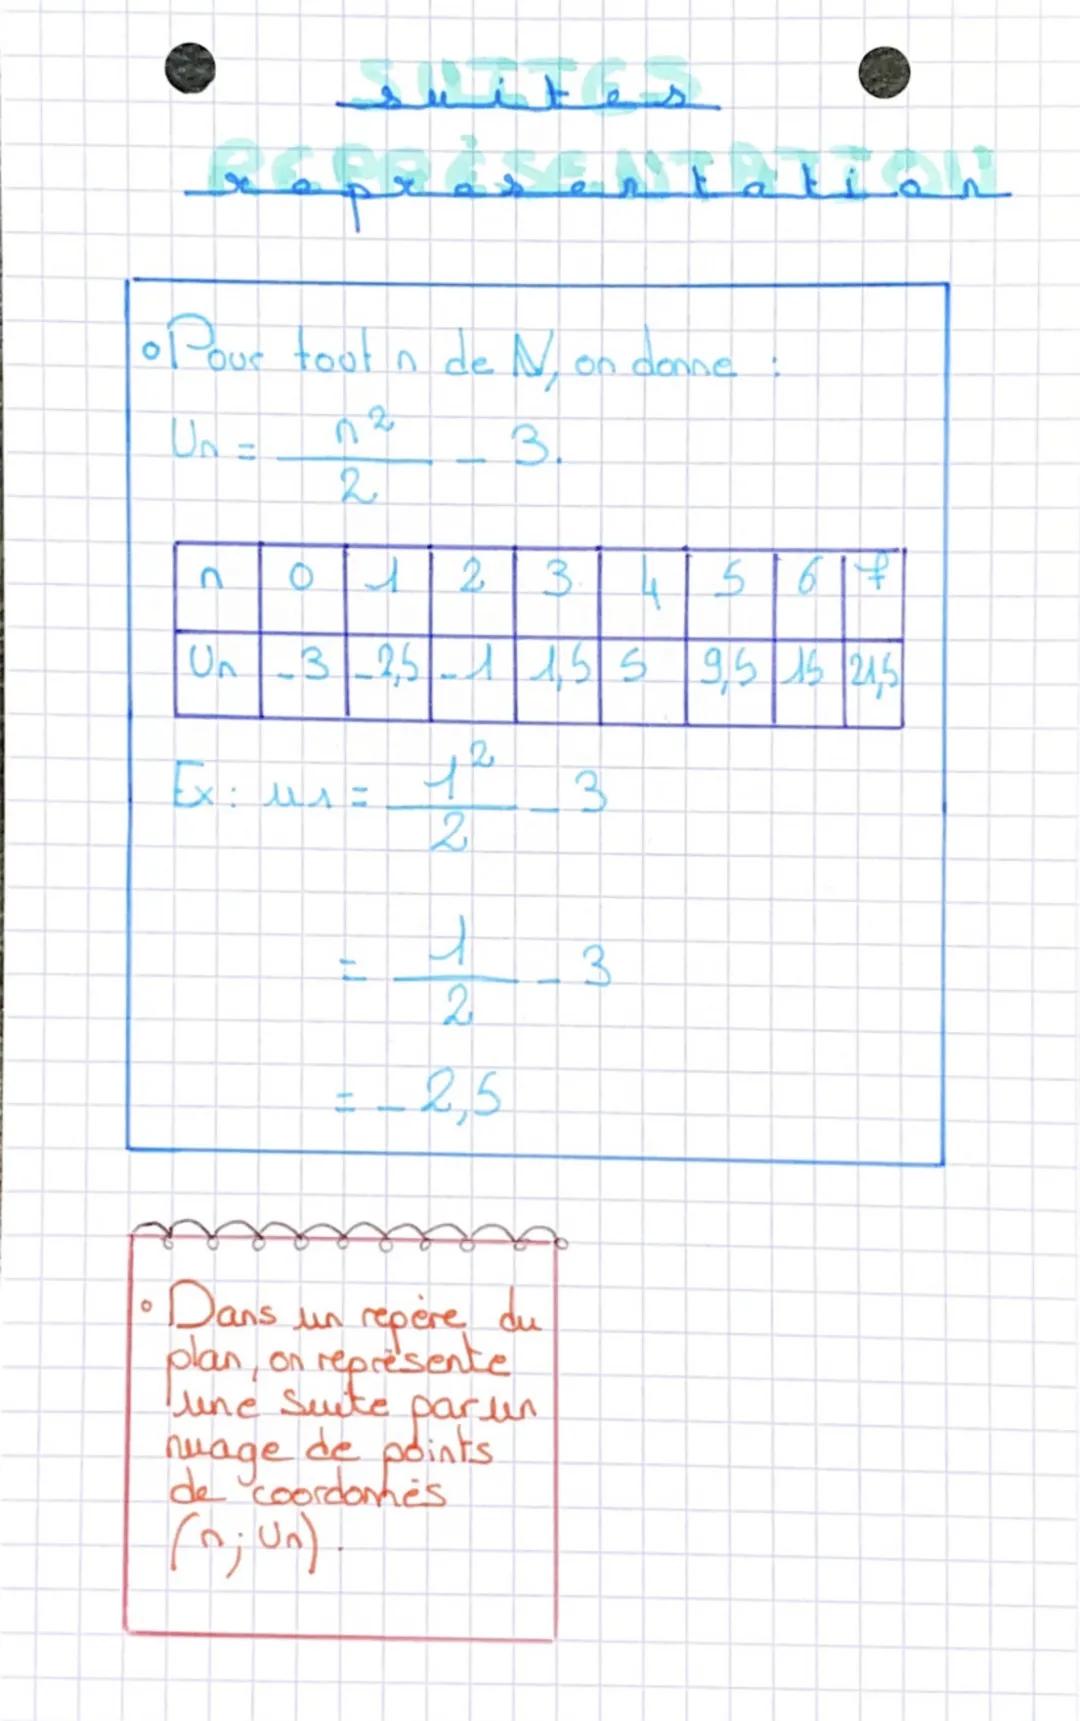 SUITES
suites
REPRÉSENTATION
représentation
Pour tout n de N, on donne :
Un = n²/2 - 3.
n 0 1 2 3 4 5 6 7
Un -3 -2,5 -1 1,5 5 9,5 15 21,5
Ex: u1 = 1²/2 - 3
= 1/2 - 3
= -2,5
Dans un repère du
plan, on représente
une suite par un
nuage de points
de coordonnés
(n; Un).